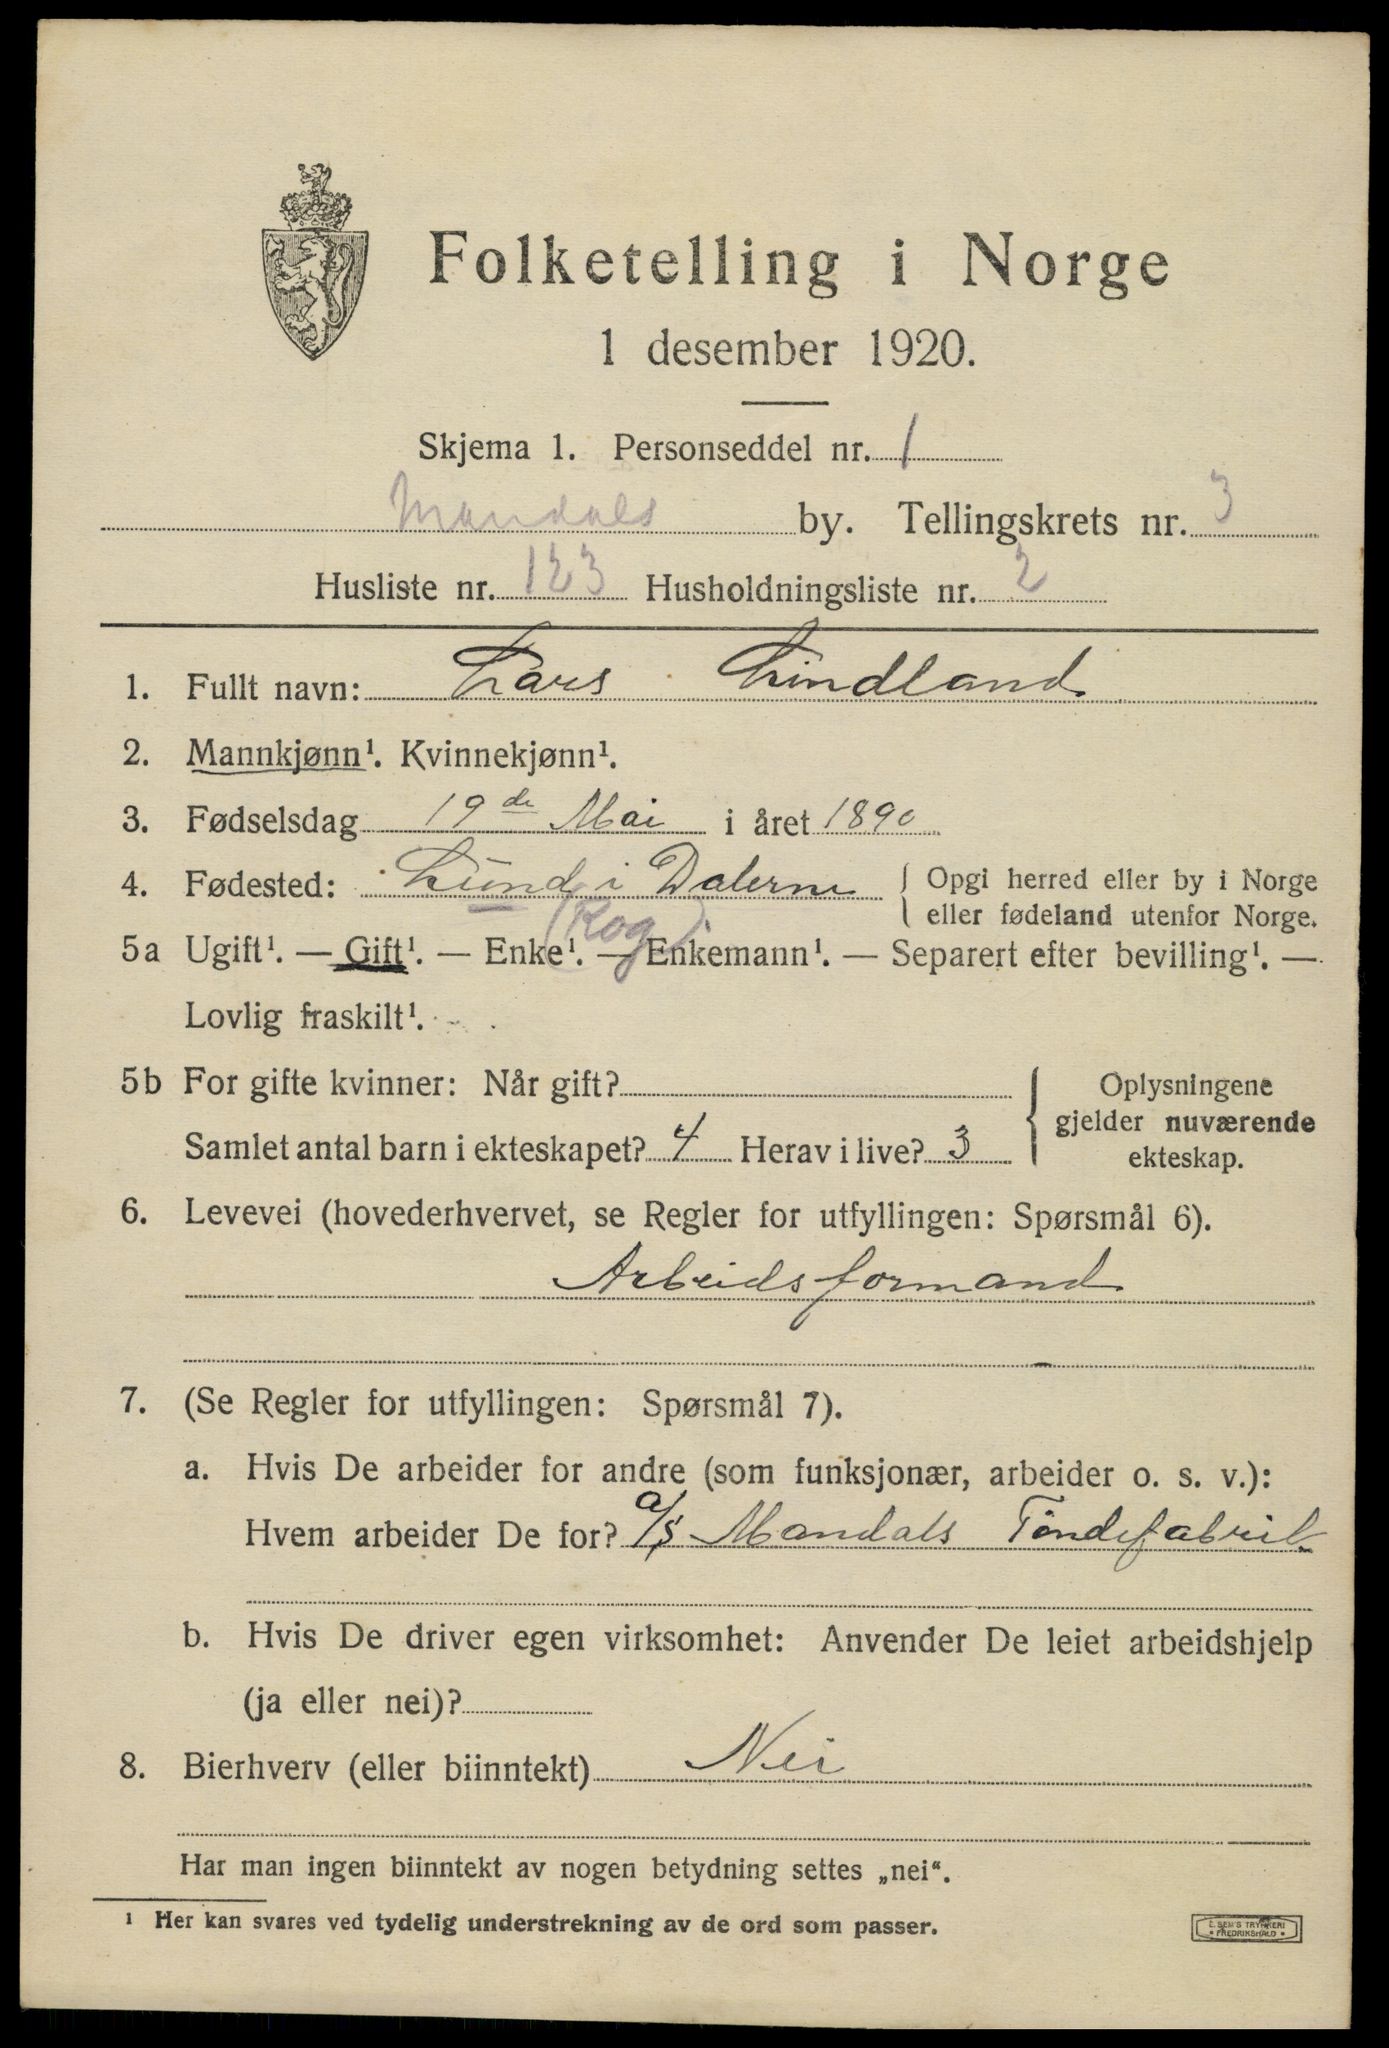 Folketelling i Norge
1 desember 1920.
Skjema 1. Personseddel nr. 1
Mandals by. Tellingskrets nr. 3
Husliste nr. 123 Husholdningsliste nr. 2
1. Fullt navn: Lars Lindland
2. Mannkjønn¹. Kvinnekjønn¹.
3. Fødselsdag 19de Mai i året 1890
4. Fødested: Lund i Dalerne { Opgi herred eller by i Norge
eller fødeland utenfor Norge.
(Rog)
5a Ugift¹. — Gift¹. — Enke¹. — Enkemann¹. — Separert efter bevilling¹. —
Lovlig fraskilt¹.
5b For gifte kvinner: Når gift?
Samlet antal barn i ekteskapet? 4 Herav i live? 3
{ Oplysningene
gjelder nuværende
ekteskap.
6. Levevei (hovederhvervet, se Regler for utfyllingen: Spørsmål 6).
Arbeidsformand
7. (Se Regler for utfyllingen: Spørsmål 7).
a. Hvis De arbeider for andre (som funksjonær, arbeider o. s. v.):
Hvem arbeider De for? a/s Mandals Tøndefabrik
b. Hvis De driver egen virksomhet: Anvender De leiet arbeidshjelp
(ja eller nei)?
8. Bierhverv (eller biinntekt) Nei
Har man ingen biinntekt av nogen betydning settes „nei“.
¹ Her kan svares ved tydelig understrekning av de ord som passer.
E. SEM'S TRYKKERI
* FREDRIKSHALD *